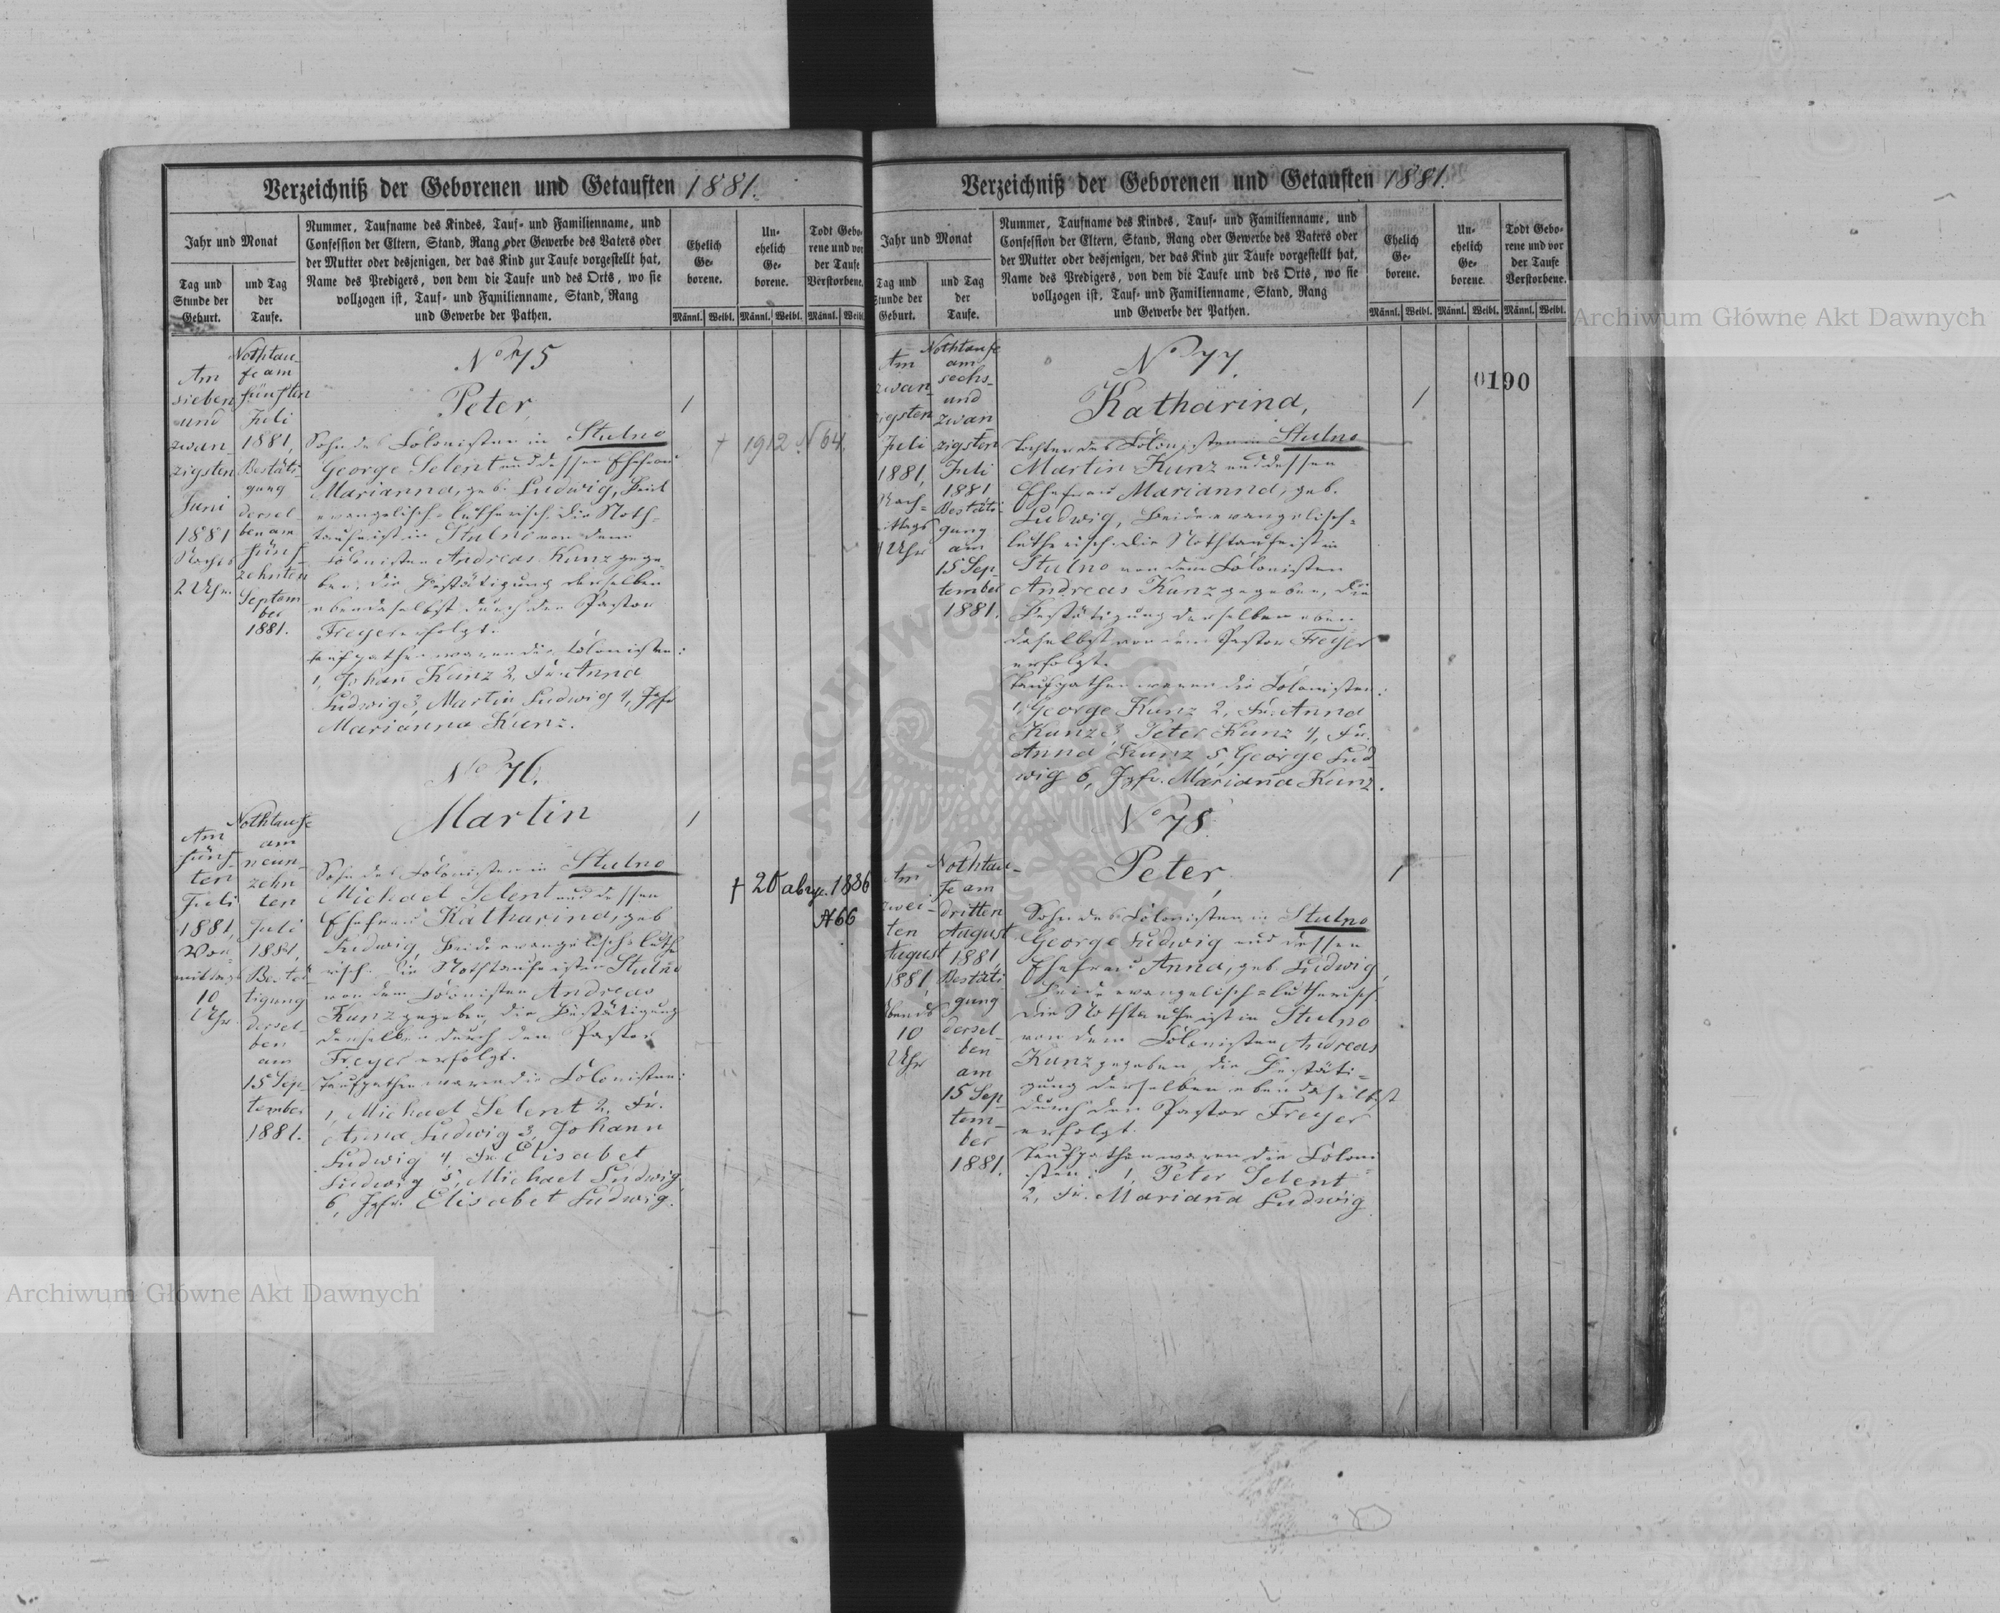 Verzeichniß der Geborenen und Getauften 1881.
Jahr und Monat
Tag und
Stunde der
Geburt.
und Tag
der
Taufe.
Nummer, Taufname des Kindes, Tauf- und Familienname, und
Confession der Eltern, Stand, Rang oder Gewerbe des Vaters oder
der Mutter oder desjenigen, der das Kind zur Taufe vorgestellt hat,
Name des Predigers, von dem die Taufe und des Orts, wo sie
vollzogen ist, Tauf- und Familienname, Stand, Rang
und Gewerbe der Pathen.
Ehelich
Ge-
borene.
Un-
ehelich
Ge-
borene.
Todt Gebo-
rene und vor
der Taufe
Verstorbene.
Männl. Weibl. Männl. Weibl. Männl. Weibl.
Am
sieben
und
zwan-
zigsten
Juni
1881
Nachts
2 Uhr.
Nothtau-
fe am
fünften
Juli
1881,
Bestäti-
gung
dersel-
ben am
fünf-
zehnten
Septem
ber
1881.
No 75
Peter,
Sohn des Colonisten in Stulno
George Selent und dessen Ehefrau
Marianna, geb. Ludwig, Beide
evangelisch-lutherisch. Die Noth-
taufe ist in Stulno von dem
Colonisten Andreas Kunz gege-
ben, die Bestätigung derselben
ebendaselbst durch den Pastor
Freyer erfolgt.
Taufpathen waren die Colonisten:
1, Johan Kunz 2, Fr. Anna
Ludwig 3, Martin Ludwig 4, Jgfr
Marianna Kunz.
1
† 1912 N 64.
Am
fünf-
ten
Juli
1881,
Vor-
mittags
10
Uhr.
Nothtaufe
am
neun-
zehn
ten
Juli
1881,
Bestä-
tigung
dersel-
ben
am
15 Sep-
tember
1881.
No 76.
Martin
Sohn des Colonisten in Stulno
Michael Selent und dessen
Ehefrau Katharina, geb
Ludwig, Beide evangelisch-luthe
risch. Die Nothtaufe ist in Stulno
von dem Colonisten Andreas
Kunz gegeben, die Bestätigung
derselben durch den Pastor
Freyer erfolgt.
Taufpathen waren die Colonisten:
1, Michael Selent 2, Fr.
Anna Ludwig 3, Johann
Ludwig 4, Fr. Elisabet
Ludwig 5, Michael Ludwig
6, Jgfr. Elisabet Ludwig.
1
1886
№66
Verzeichniß der Geborenen und Getauften 1881.
Jahr und Monat
Tag und
Stunde der
Geburt.
und Tag
der
Taufe.
Nummer, Taufname des Kindes, Tauf- und Familienname, und
Confession der Eltern, Stand, Rang oder Gewerbe des Vaters oder
der Mutter oder desjenigen, der das Kind zur Taufe vorgestellt hat,
Name des Predigers, von dem die Taufe und des Orts, wo sie
vollzogen ist, Tauf- und Familienname, Stand, Rang
und Gewerbe der Pathen.
Ehelich
Ge-
borene.
Un-
ehelich
Ge-
borene.
Todt Gebo-
rene und vor
der Taufe
Verstorbene.
Männl. Weibl. Männl. Weibl. Männl. Weibl.
0190
Am
zwan-
zigsten
Juli
1881,
Nach-
mittags
Uhr
Nothtaufe
am
sechs-
und
zwan-
zigsten
Juli
1881
Bestäti-
gung
am
15 Sep-
tember
1881.
No 77.
Katharina,
Tochter des Colonisten in Stulno
Martin Kunz und dessen
Ehefrau Marianna, geb.
Ludwig, Beide evangelisch-
lutherisch. Die Nothtaufe ist in
Stulno von dem Colonisten
Andreas Kunz gegeben, die
Bestätigung derselben eben
daselbst von dem Pastor Freyer
erfolgt.
Taufpathen waren die Colonisten:
1, George Kunz 2, Fr. Anna
Kunz 3, Peter Kunz 4, Fr.
Anna Kunz 5, George Lud-
wig 6, Jgfr. Marianna Kunz.
1
Am
zwei-
ten
August
1881
Abends
10
Uhr
Nothtau-
fe am
dritten
August
1881,
Bestäti
gung
dersel-
ben
am
15 Sep-
tem-
ber
1881.
No 78.
Peter,
Sohn des Colonisten in Stulno
George Ludwig und dessen
Ehefrau Anna, geb. Ludwig,
Beide evangelisch-lutherisch.
Die Nothtaufe ist in Stulno
von dem Colonisten Andreas
Kunz gegeben, die Bestäti-
gung derselben ebendaselbst
durch den Pastor Freyer
erfolgt.
Taufpathen waren die Coloni-
sten: 1, Peter Selent
2, Fr. Mariana Ludwig
1
Archiwum Główne Akt Dawnych
Archiwum Główne Akt Dawnych